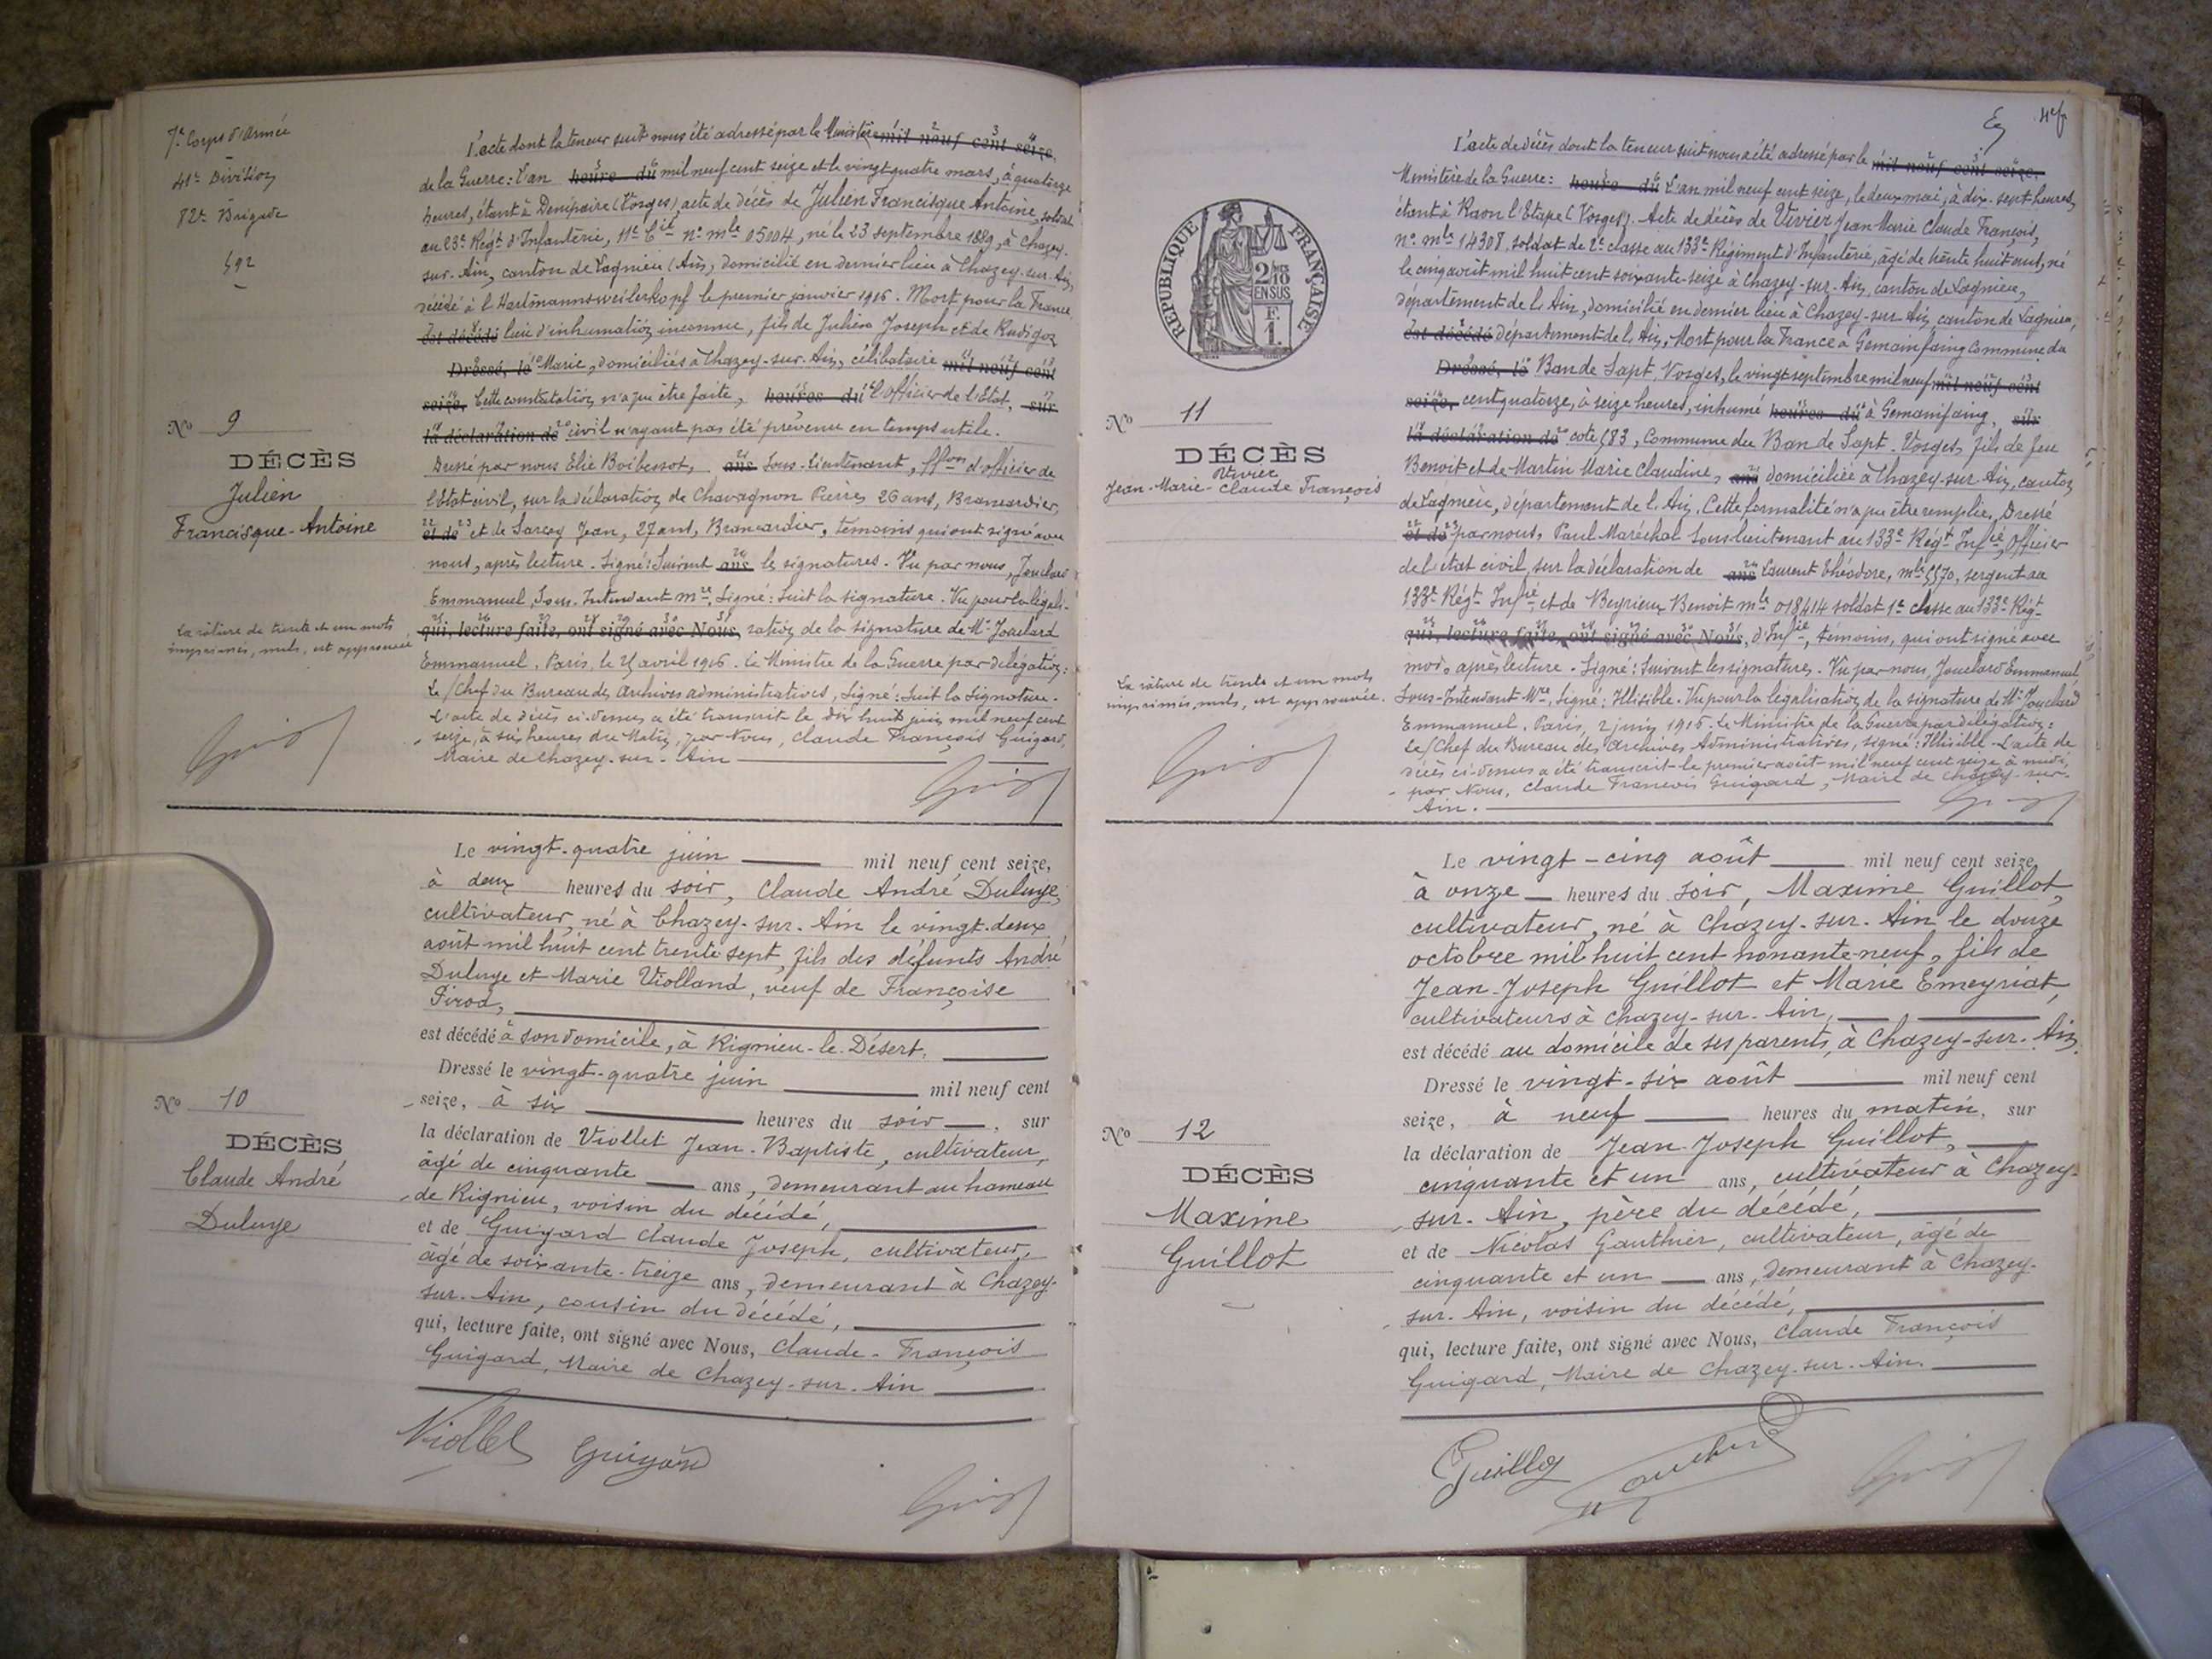 7e Corps d'Armée
41e Division
82e Brigade
592
No 9
DÉCÈS
Julien
Francisque-Antoine
La râture de trente et un mots
imprimés, nuls, est approuvée
L'acte dont la teneur suit nous été adressé par le Ministère mil neuf cent seize.
de la Guerre: L'an heure du mil neuf cent seize et le vingt quatre mars, à quatorze
heures, étant à Denipaire (Vosges), acte de décès de Julien Francisque Antoine, soldat
au 23e Régt d'Infanterie, 11e Cie no mle 05004, né le 23 septembre 1889, à Chazey-
sur-Ain, canton de Lagnieu (Ain), domicilié en dernier lieu à Chazey-sur-Ain,
décédé à l'Hartmannsweilerkopf le premier janvier 1916. Mort pour la France
est décédé lieu d'inhumation inconnue, fils de Julien Joseph et de Rudigoz
Dressé, le Marie, domiciliés à Chazey-sur-Ain, célibataire mil neuf cent
seize, Cette constatation n'a pu être faite, heures du L'officier de l'Etat, sur
la déclaration de civil n'ayant pas été prévenu en temps utile.
Dressé par nous Elie Boibessot, ans Sous-Lieutenant, ffons d'officier de
l'Etat civil, sur la déclaration de Chavagnon Pierre, 26 ans, Brancardier,
et de et de Sarcey Jean, 27 ans, Brancardier, témoins qui ont signé avec
nous, après lecture. Signé: Suivent ans les signatures. Vu par nous, Jouclard
Emmanuel, Sous-Intendant mre, Signé: Suit la signature. Vu pour la légali-
qui, lecture faite, ont signé avec Nous, sation de la signature de Mr Jouclard
Emmanuel. Paris, le 25 avril 1916. Le Ministre de la Guerre par délégation:
Le Chef du Bureau des Archives administratives, Signé: Suit la Signature.
L'acte de décès ci-dessus a été transcrit le dix huit juin mil neuf cent
seize, à six heures du Matin, par Nous, Claude François Guigard,
Maire de Chazey-sur-Ain
No 10
DÉCÈS
Claude André
Duluye
Le vingt-quatre juin mil neuf cent seize,
à deux heures du soir, Claude André Duluye,
cultivateur, né à Chazey-sur-Ain le vingt-deux
août mil huit cent trente sept, fils des défunts André
Duluye et Marie Violland, veuf de Françoise
Pirod,
est décédé à son domicile, à Rignieu-le-Désert,
Dressé le vingt-quatre juin mil neuf cent
seize, à six heures du soir, sur
la déclaration de Viollet Jean-Baptiste, cultivateur,
âgé de cinquante ans, demeurant au hameau
de Rignieu, voisin du décédé,
et de Guigard Claude Joseph, cultivateur,
âgé de soixante-treize ans, demeurant à Chazey-
sur-Ain, cousin du décédé,
qui, lecture faite, ont signé avec Nous, Claude-François
Guigard, Maire de Chazey-sur-Ain
Viollet Guigard
4e f
RÉPUBLIQUE FRANÇAISE
2 10 EN SUS
F. 1.
No 11
DÉCÈS
Vivier
Jean-Marie-Claude François
La râture de trente et un mots
imprimés, nuls, est approuvée.
L'acte de décès dont la teneur suit nous a été adressé par le mil neuf cent seize.
Ministère de la Guerre: heure du L'an mil neuf cent seize, le deux mai, à dix-sept heures,
étant à Raon l'Etape (Vosges). Acte de décès de Vivier Jean Marie Claude François,
no mle 14308, soldat de 2e classe au 133e Régiment d'Infanterie, âgé de trente huit ans, né
le cinq août mil huit cent soixante-seize à Chazey-sur-Ain, canton de Lagnieu,
département de l'Ain, domicilié en dernier lieu à Chazey-sur-Ain, canton de Lagnieu,
est décédé département de l'Ain, Mort pour la France à Gemainfaing Commune du
Dressé, le Ban de Sapt, Vosges, le vingt septembre mil neuf mil neuf cent
seize, cent quatorze, à seize heures, inhumé heures du à Gemainfaing, sur
la déclaration de cote 583, Commune du Ban de Sapt. Vosges, fils de feu
Benoit et de Martin Marie Claudine, ans domiciliée à Chazey-sur-Ain, canton
de Lagnieu, département de l'Ain. Cette formalité n'a pu être remplie. Dressé
et de par nous, Paul Maréchal Sous lieutenant au 133e Régt Infie, Officier
de l'état civil, sur la déclaration de ans Laurent Théodore, mle 5570, sergent au
133e Régt Infie et de Beyrieux Benoit mle 018414 soldat 1e classe au 133e Régt
qui, lecture faite, ont signé avec Nous, d'Infie, témoins, qui ont signé avec
nous, après lecture. Signé: Suivent les signatures. Vu par nous, Jouclard Emmanuel,
Sous-Intendant Mre, Signé: Illisible. Vu pour la légalisation de la signature de Mr Jouclard
Emmanuel. Paris, 2 juin 1916. Le Ministre de la Guerre par délégation:
Le Chef du Bureau des Archives Administratives, signé: Illisible. L'acte de
décès ci-dessus a été transcrit le premier août mil neuf cent seize à midi,
par Nous, Claude François Guigard, Maire de Chazey-sur-
Ain.
No 12
DÉCÈS
Maxime
Guillot
Le vingt-cinq août mil neuf cent seize,
à onze heures du soir, Maxime Guillot,
cultivateur, né à Chazey-sur-Ain le douze
octobre mil huit cent nonante-neuf, fils de
Jean-Joseph Guillot et Marie Emeyriat,
cultivateurs à Chazey-sur-Ain,
est décédé au domicile de ses parents, à Chazey-sur-Ain,
Dressé le vingt-six août mil neuf cent
seize, à neuf heures du matin, sur
la déclaration de Jean-Joseph Guillot,
cinquante et un ans, cultivateur à Chazey-
sur-Ain, père du décédé,
et de Nicolas Gauthier, cultivateur, âgé de
cinquante et un ans, demeurant à Chazey-
sur-Ain, voisin du décédé,
qui, lecture faite, ont signé avec Nous, Claude François
Guigard, Maire de Chazey-sur-Ain.
Guillot